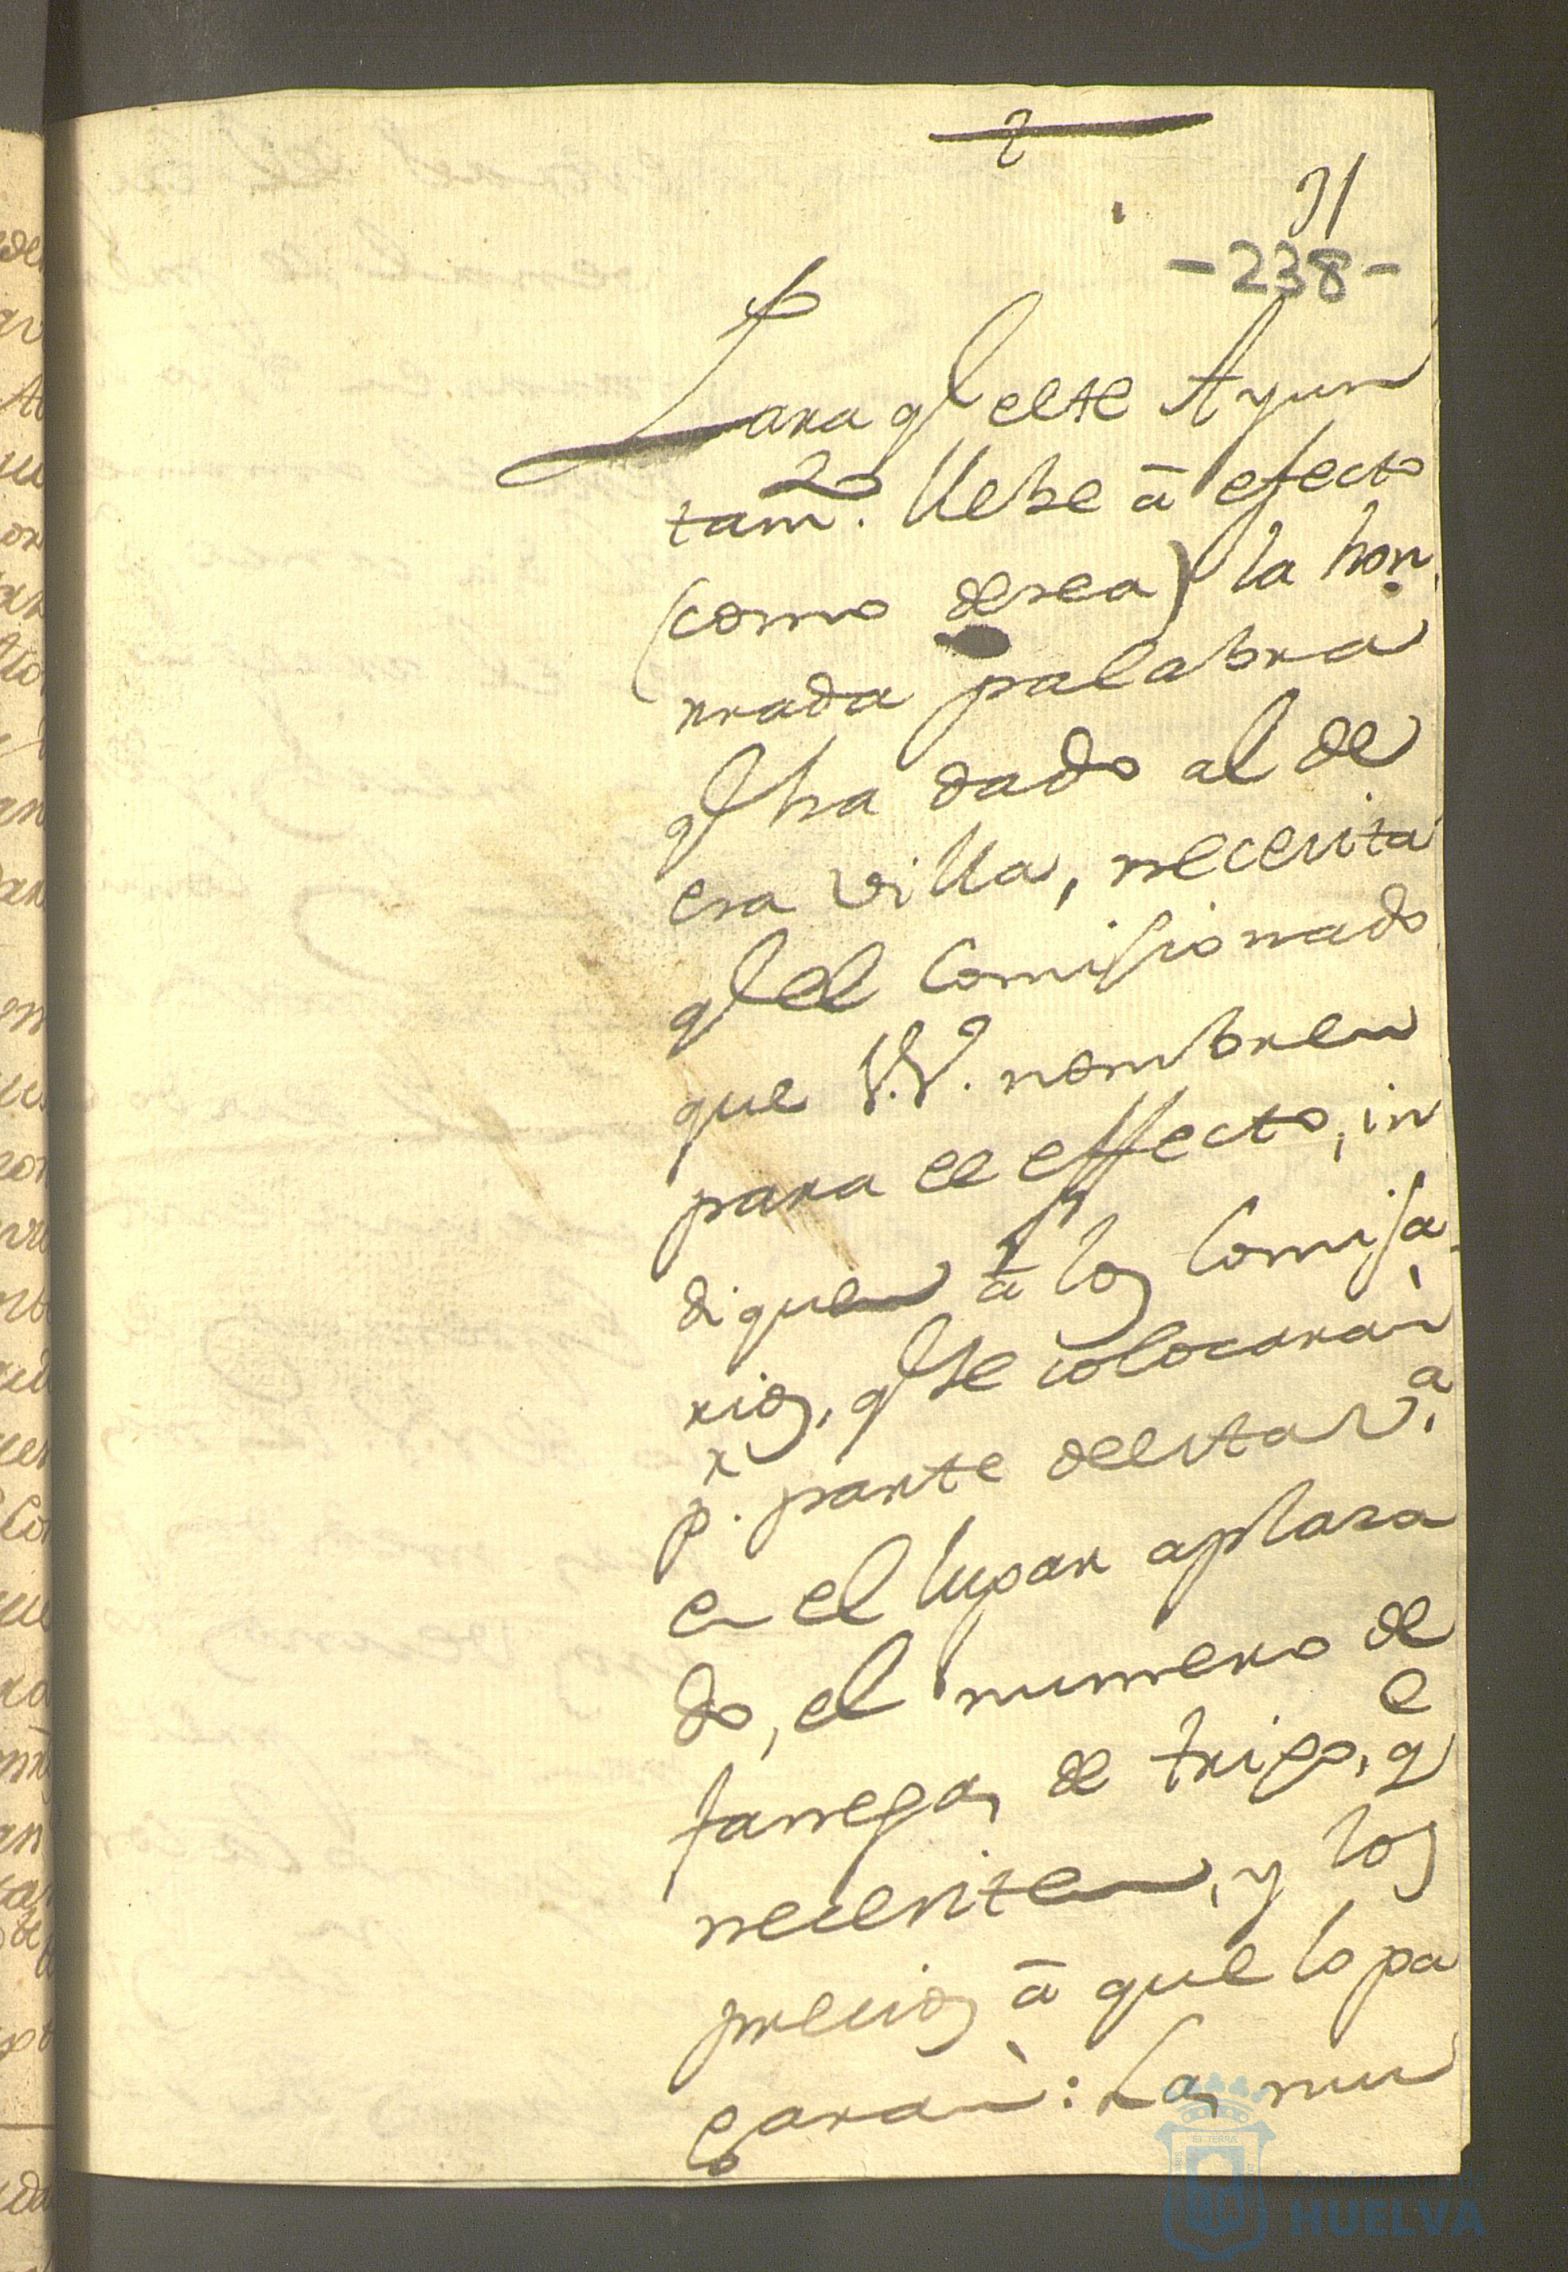 31
-238-
Para q.e este Ayun
tam.to llebe â efecto
(como desea) la hon
rrada palabra
q.e ha dado al de
esa villa, necesita
q.e el Comisionado
que V.V. nombren
para el effecto, in
diquen â los Comisa-
rios, q.e se colocaràn
p.r parte de esta V.a
en el lugar aplaza
do, el numero de
fanegas de trigo, q.e
necesiten, y los
precios â que lo pa
garàn: Las mu
HUELVA